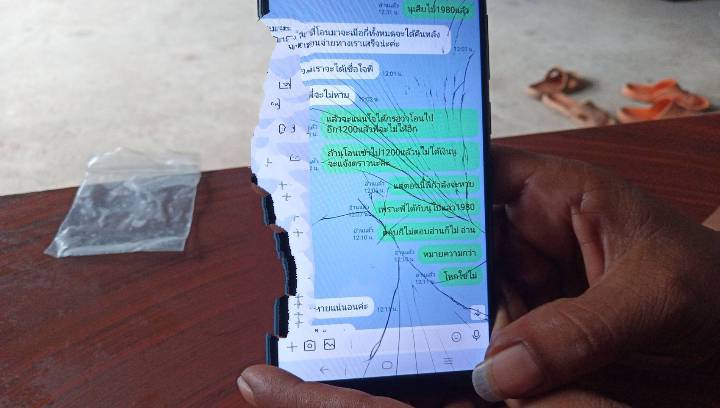 อ่านแล้ว
12:01 น.
นุเสียไป1980แล้ว
ที่โอนมาจะเมื่อกี้ทั้งหมดจะได้คืนหลัง
จ่ายทางเราเสร็จน่ะค่ะ
12:01 น.
เราจะได้เชื่อใจพี่
12:01 น.
12:02 น.
แล้วจะแน่นใจได้กรอว่าโอนไป
อีก1200แล้วพี่จะไม่ให้อีก
ถ้านุโอนเข้าไป1200แล้วนุไม่ได้เงินนุ
จะแจ้งตราวนะค่ะ
อ่านแล้ว
แต่ตอนนี้พี่กำลังจะหาย
เพราะพี่ได้กับนุไปแล้ว1980
อ่านแล้ว
12:10 น.
ตอบก็ไม่ตอบอ่านก็ไม่ อ่าน
อ่านแล้ว
หมายความกว่า
อ่านแล้ว
12:11 น.
โหดใช่ไม่
หายแน่นอนค่ะ
12:11 น.